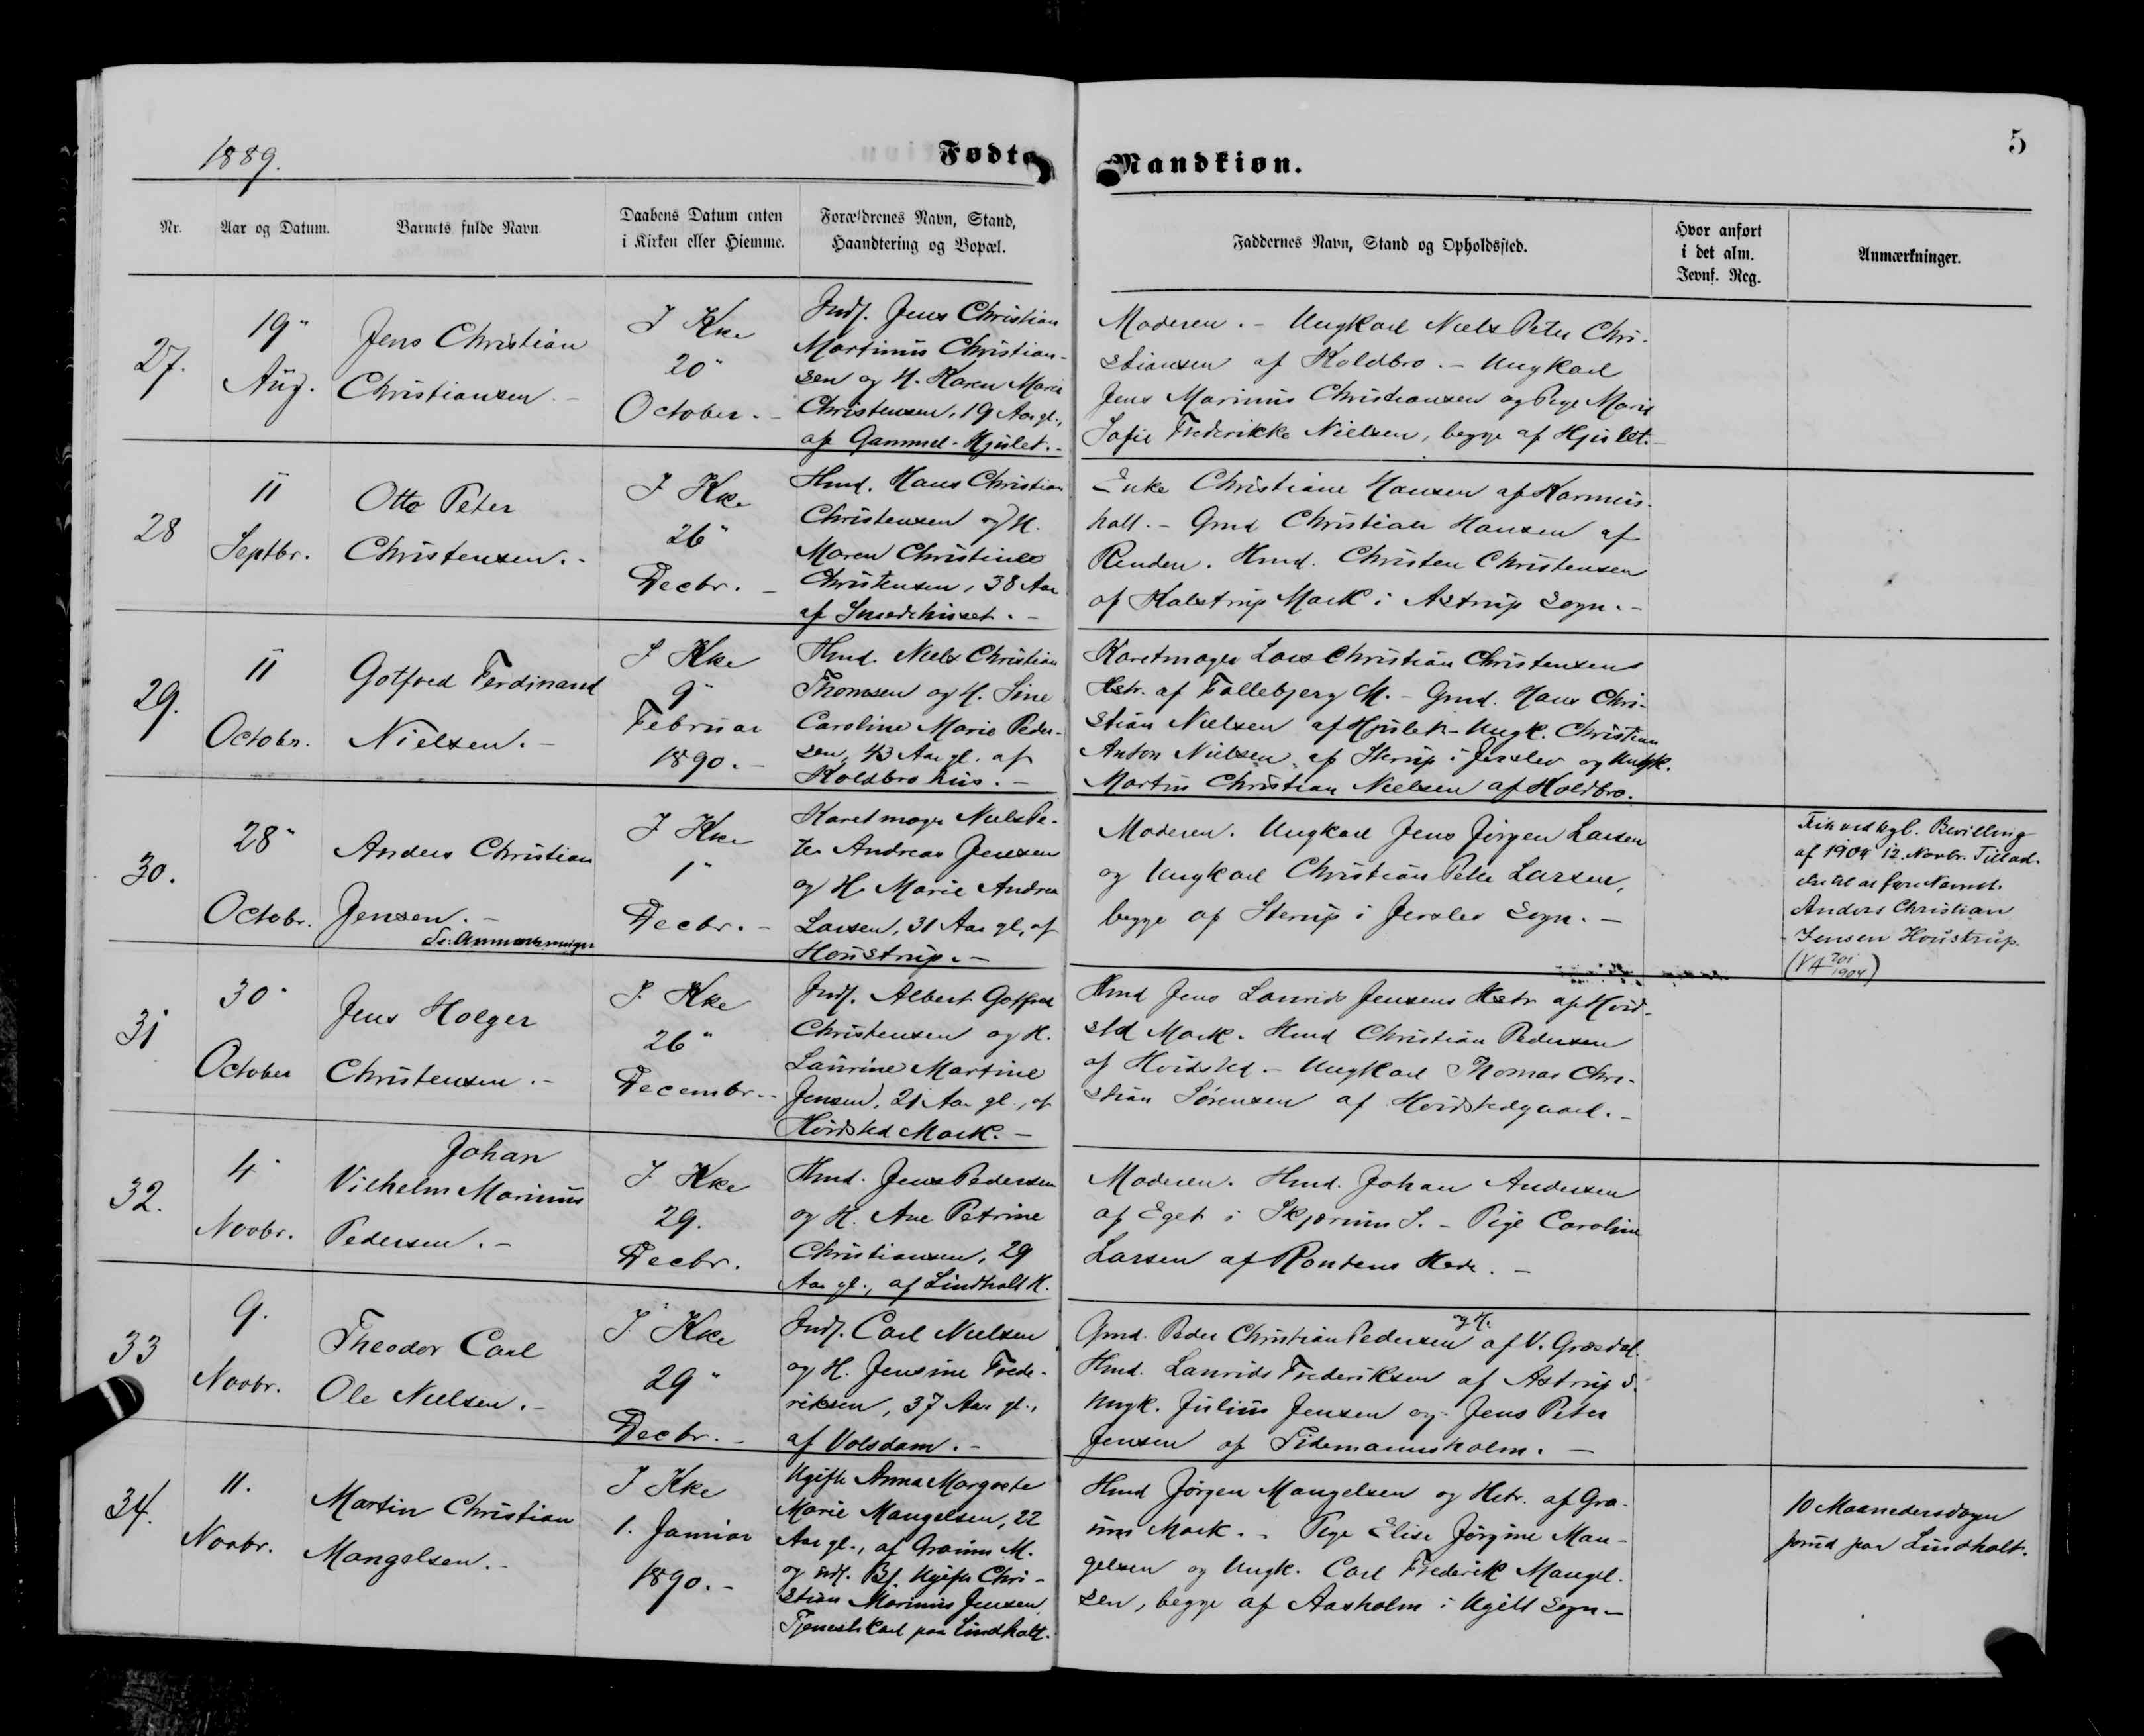 1889.
Fødte
Mandkiøn.
5
Nr.
Aar og Datum.
Barnets fulde Navn.
Daabens Datum enten
i Kirken eller Hiemme.
Forældrenes Navn, Stand,
Haandtering og Bopæl.
Faddernes Navn, Stand og Opholdssted.
Hvor anført
i det alm.
Jevnf. Reg.
Anmærkninger.
27.
19"
Aug.
Jens Christian
Christiansen. -
I Kke
20"
October. -
Inds. Jens Christian
Martinus Christian-
sen og H. Karen Marie
Christensen, 19 Aar gl.,
af Gammel-Hjulet. -
Moderen. - Ungkarl Niels Peter Chri-
stiansen af Koldbro. - Ungkarl
Jens Marinus Christiansen og Pige Marie
Sofie Frederikke Nielsen, begge af Hjulet. -
28
11
Septbr.
Otto Peter
Christensen. -
I Kke
26"
Decbr. -
Hmd. Hans Christian
Christensen og H.
Maren Christine
Christensen, 38 Aar
af Smedehuset. -
Enke Christiane Hansen af Karmis-
halt. - Gmd Christian Hansen af
Renden. Hmd. Christen Christensen
af Kalstrup Mark i Astrup Sogn. -
29.
11
Octobr.
Gotfred Ferdinand
Nielsen. -
I Kke
9"
Februar
1890. -
Hmd. Niels Christian
Thomsen og H. Sine
Caroline Marie Peder-
sen, 43 Aar gl. af
Koldbrohus. -
Karetmager Lars Christian Christensens
Hstr. af Follebjerg M. - Gmd. Hans Chri-
stian Nielsen af Hjulet - Ungk. Christian
Anton Nielsen af Sterup i Jerslev og Ungk.
Martin Christian Nielsen af Koldbro.
30.
28"
Octobr.
Anders Christian
Jensen. -
Se: Anmærkninger
I Kke
1"
Decbr. -
Karetmager Niels Pe-
ter Andreas Jensen
og H. Marie Andrea
Larsen, 31 Aar gl., af
Houstrup. -
Moderen. Ungkarl Jens Jørgen Larsen
og Ungkarl Christian Peter Larsen,
begge af Sterup i Jerslev Sogn. -
Fik ved kgl. Bevilling
af 1904 12. Novbr. Tillad-
else til at føre Navnet.
Anders Christian
Jensen Houstrup.
(VA 701/1904)
31
30"
October
Jens Holger
Christensen. -
I. Kke
26"
Decembr. -
Inds. Albert Gotfred
Christensen og H.
Laurine Martine
Jensen, 21 Aar gl., af
Hvidsted Mark. -
Hmd Jens Laurids Jensens Hstr af Hvid-
sted Mark. Hmd Christian Pedersen
af Hvidsted - Ungkarl Thomas Chri-
stian Sørensen af Hvidstedgaard. -
32.
4"
Novbr.
Johan
Vilhelm Marinus
Pedersen. -
I Kke
29.
Decbr.
Hmd. Jens Pedersen
og H. Ane Petrine
Christiansen, 29
Aar gl., af Lindholt H.
Moderen. Hmd. Johan Andersen
af Eget i Skjærum S. - Pige Caroline
Larsen af Rontens Hede. -
33
9.
Novbr.
Theodor Carl
Ole Nielsen. -
I. Kke
29"
Decbr. -
Inds. Carl Nielsen
og H. Jensine Frede-
riksen, 37 Aar gl.,
af Volsdam. -
og H.
Gmd. Peder Christian Pedersen af V. Græsdal.
Hmd. Laurids Frederiksen af Astrup S.
Ungk. Julius Jensen og Jens Peter
Jensen af Tidemannsholm. -
34.
11.
Novbr.
Martin Christian
Mangelsen. -
I Kke
1. Januar
1890. -
Ugifte Anna Margrete
Marie Mangelsen, 22
Aar gl., af Graum M.
og uds. Bf. Ugifte Chri-
stian Marinus Jensen,
Tjenestekarl paa Lindholt.
Hmd Jørgen Mangelsen og Hstr. af Gra-
um Mark. - Pige Elise Jørgine Man-
gelsen og Ungk. Carl Frederik Mangel-
sen, begge af Aasholm i Ugilt Sogn -
10 Maanedersdagen
forud paa Lindholt.